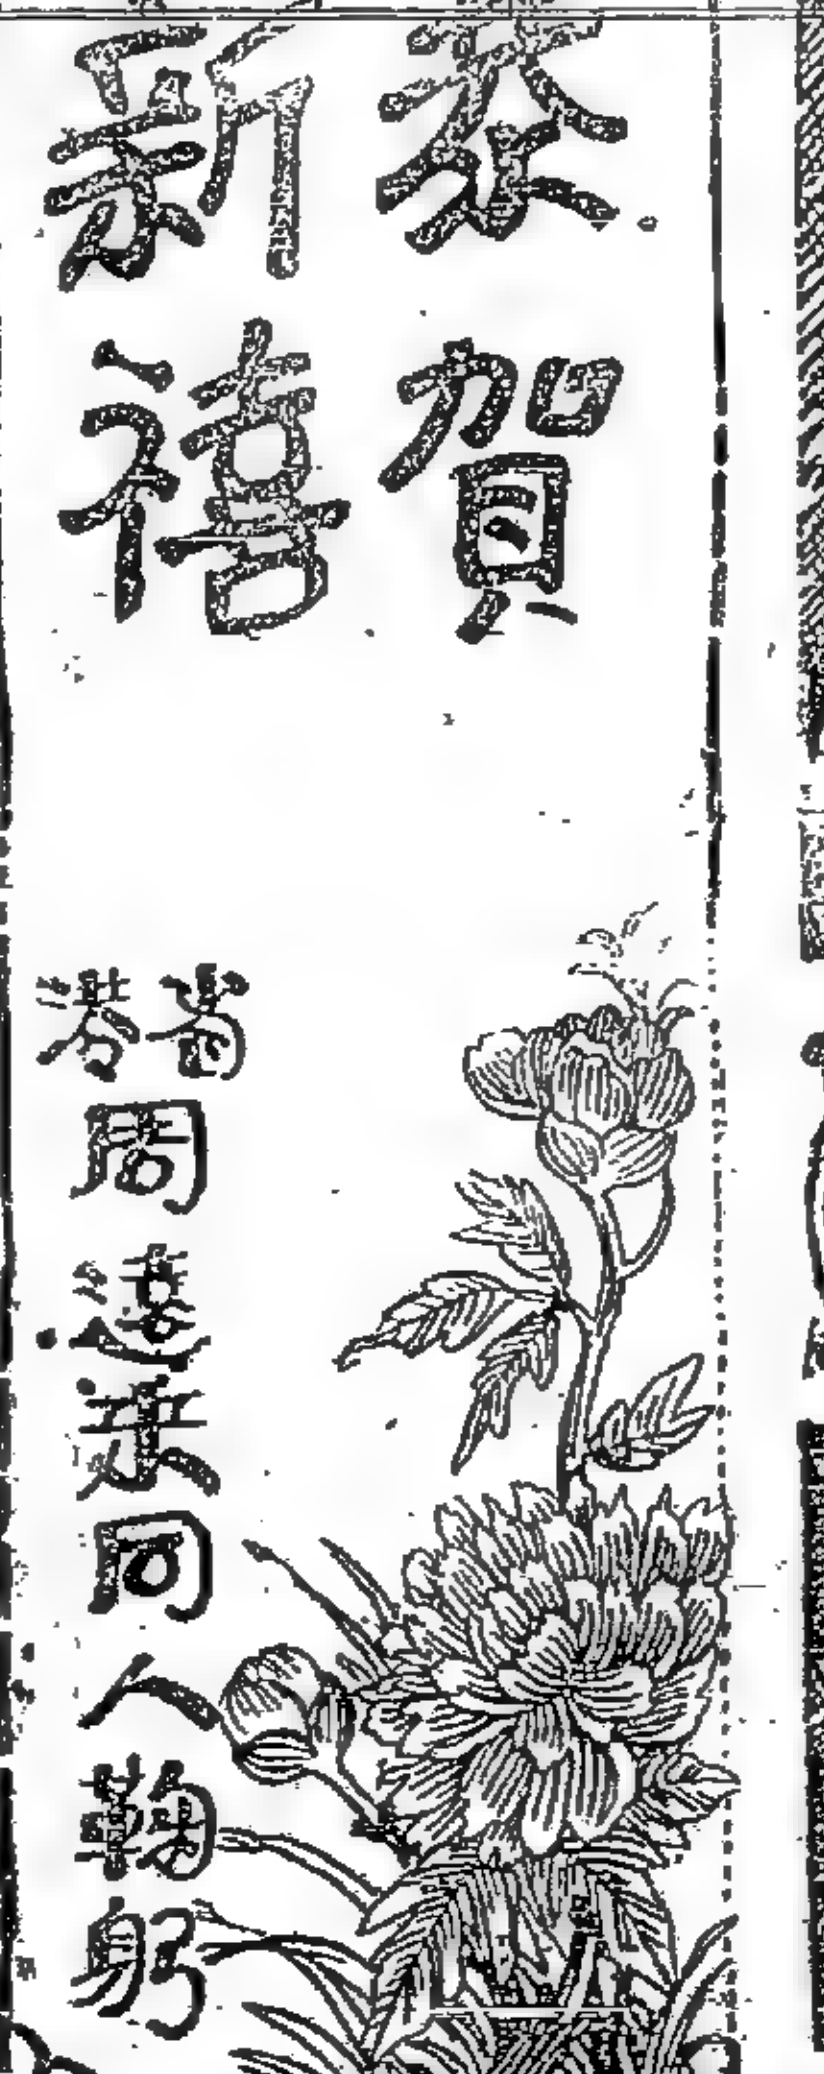 恭賀
新禧
省港
周遠同人鞠躬